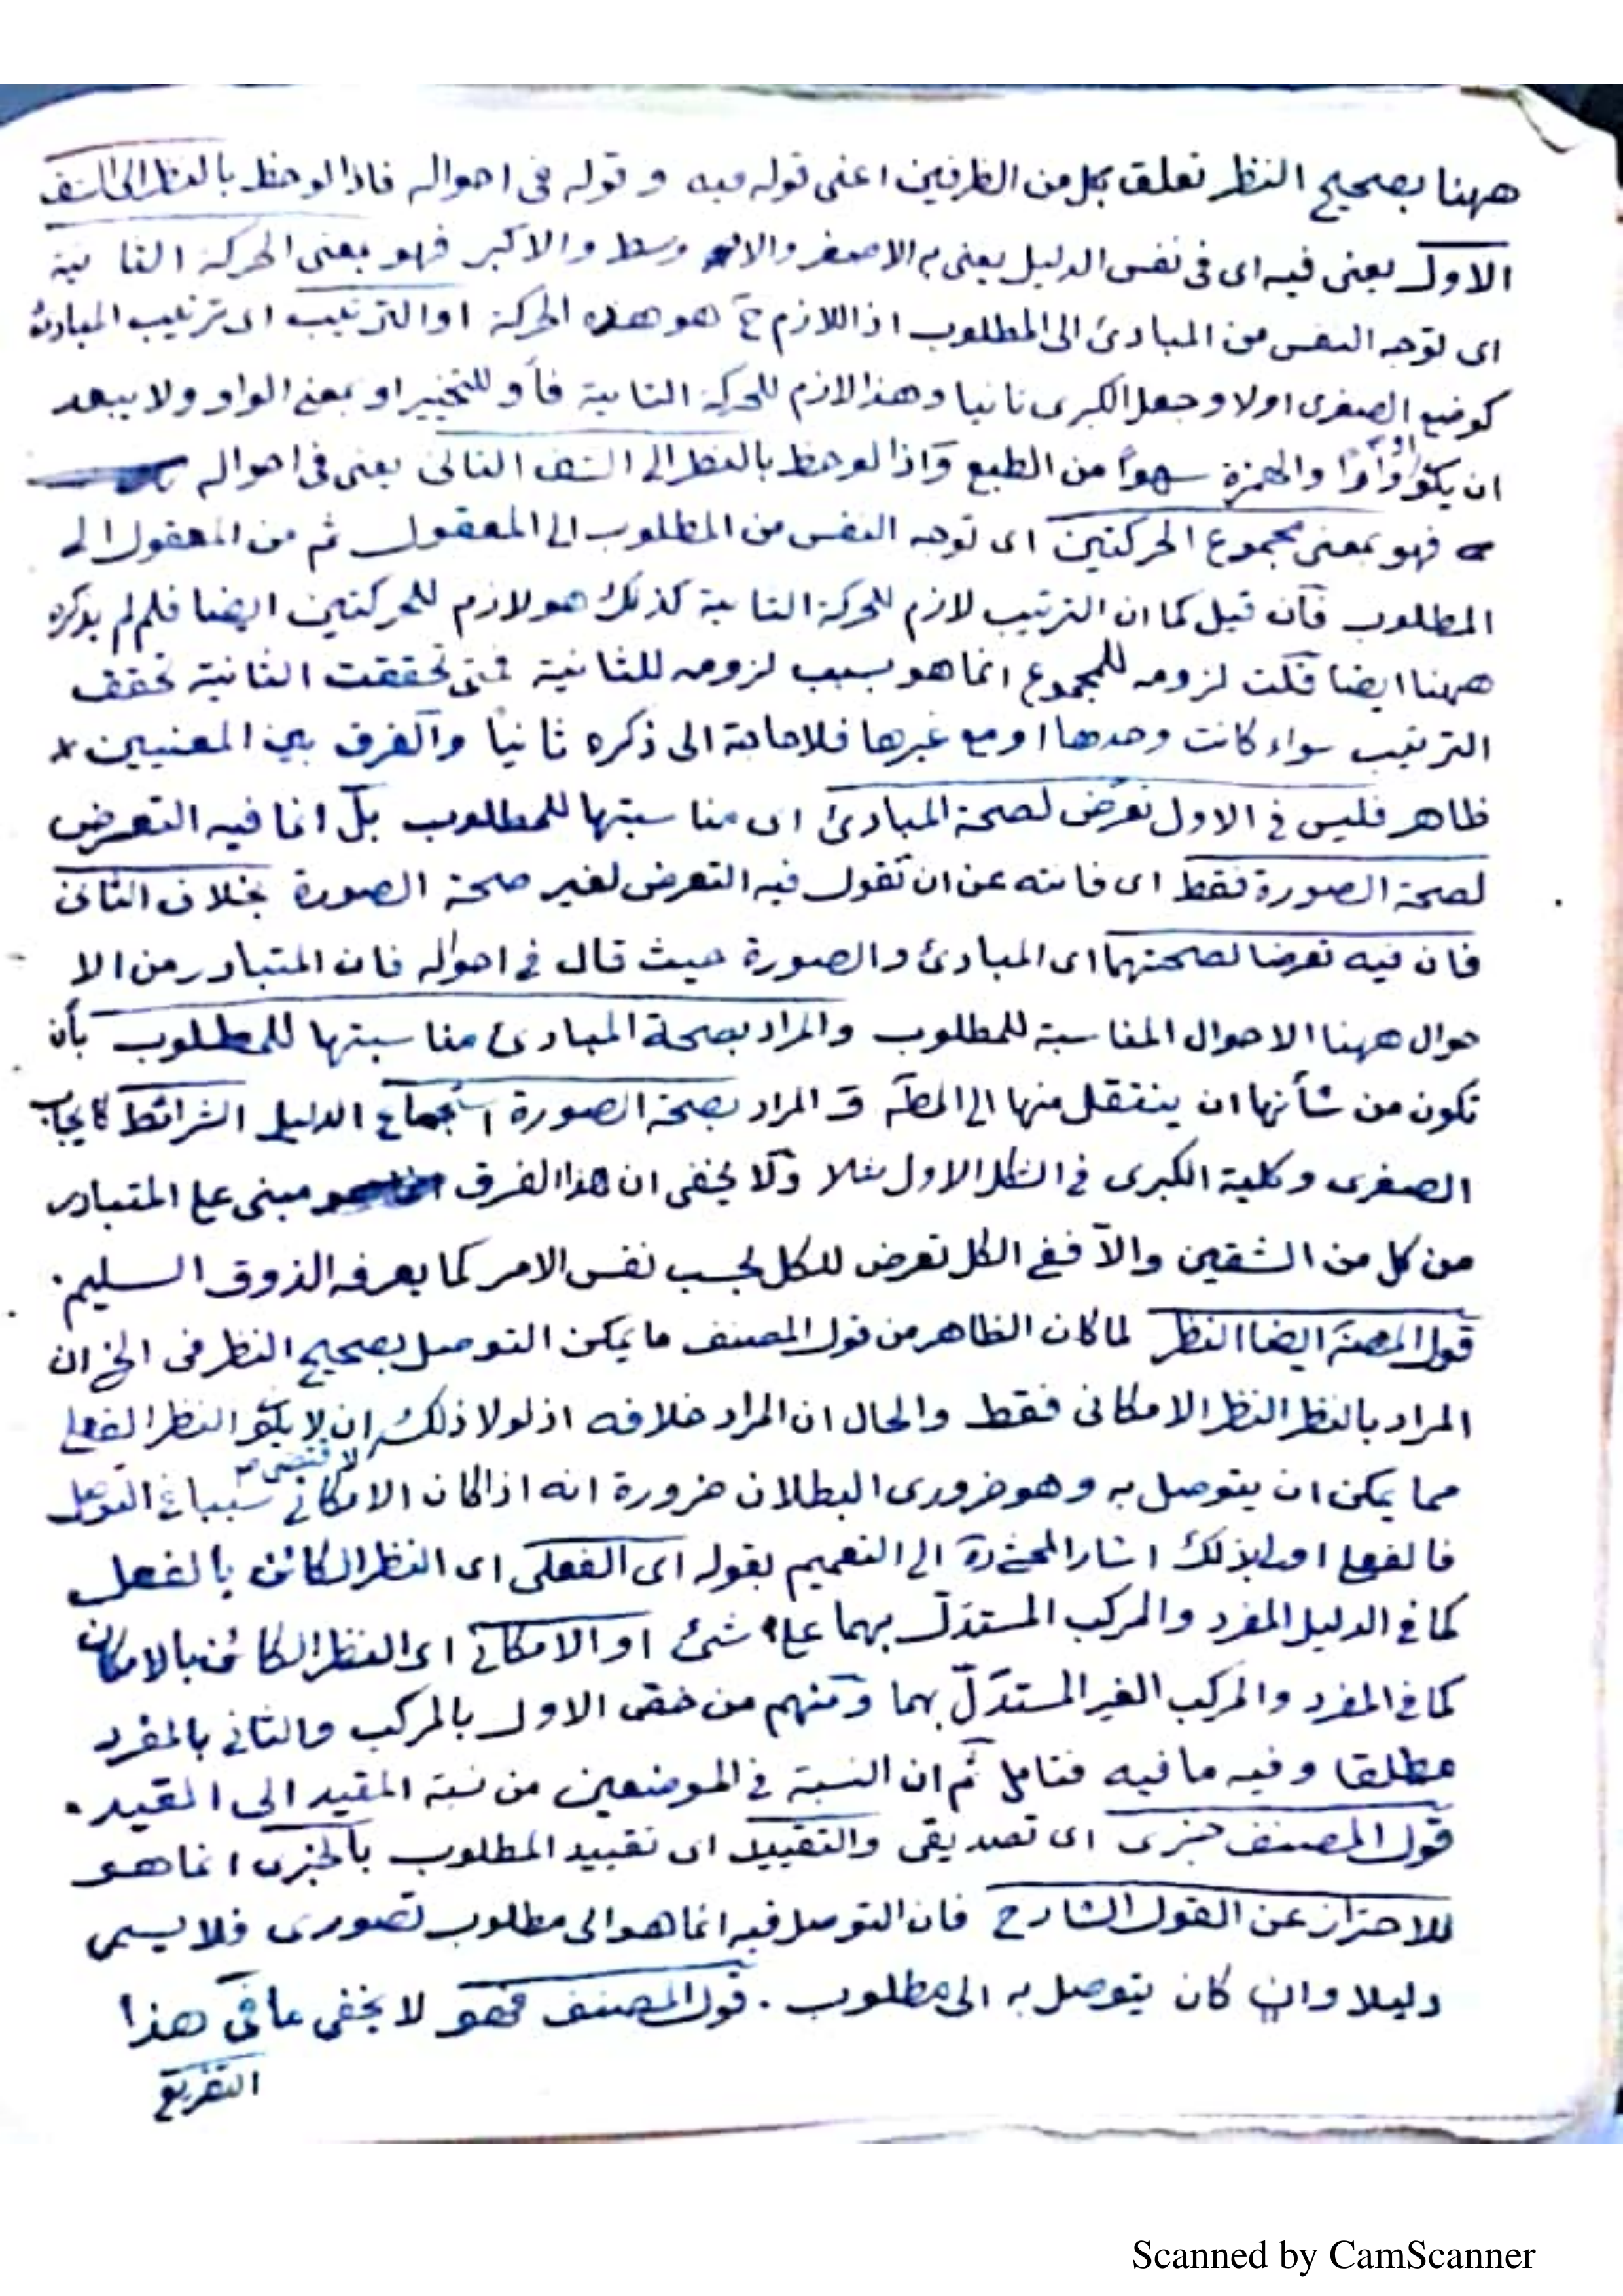 ههنا بصحيح النظر تعلق بكل من الظرفين اعنى قوله فيه و قوله فى احواله فاذا لوحظ بالنظر الى الشق
الاول يعنى فيه اى فى نفس الدليل يعنى م الاصغر والاوسط والاكبر فهو بمعنى الحركة الثانية
اى توجه النفس من المبادئ الى المطلوب اذ اللازم ح هو هذه الحركة او الترتيب اى ترتيب المبادئ
كوضع الصغرى اولا وجعل الكبرى ثانيا وهذا لازم للحركة الثانية فأو للتخيير او بمعنى الواو ولا يبعد
ان يكو واوًا والهمزة سهوًا من الطبع واذا لوحظ بالنظر الى الشق الثانى يعنى فى احواله
فهو بمعنى مجموع الحركتين اى توجه النفس من المطلوب الى المعقول ثم من المعقول الى
المطلوب فان قيل كما ان الترتيب لازم للحركة الثانية كذلك هو لازم للحركتين ايضا فلم لم يذكره
ههنا ايضا قلت لزومه للمجموع انما هو بسبب لزومه للثانية فمتى تحققت الثانية تحقق
الترتيب سواء كانت وحدها او مع غيرها فلا حاجة الى ذكره ثانيا والفرق بين المعنيين
ظاهر فليس فى الاول تعرّض لصحة المبادئ اى مناسبتها للمطلوب بل انما فيه التعرض
لصحة الصورة فقط اى فانته عن ان تقول فيه التعرض لغير صحة الصورة بخلاف الثانى
فان فيه تعرضا لصحتهما اى المبادئ والصورة حيث قال فى احواله فان المتبادر من الا
حوال ههنا الاحوال المناسبة للمطلوب والمراد بصحة المبادئ مناسبتها للمطلوب بأن
تكون من شأنها ان ينتقل منها الى المط و المراد بصحة الصورة استجماع الدليل الشرائط كايجاب
الصغرى وكلية الكبرى فى الشكل الاول مثلا ولا يخفى ان هذا الفرق مبنى على المتبادر
من كل من الشقين والا ففى الكل تعرض للكل بحسب نفس الامر كما يعرفه الذوق السليم.
قول المصنف ايضا النظر لما كان الظاهر من قول المصنف ما يمكن التوصل بصحيح النظر فى الخ ان
المراد بالنظر النظر الامكانى فقط والحال ان المراد خلافه اذ لولا ذلك لاقتضى ان لا يكو النظر الفعلى
مما يمكن ان يتوصل به وهو ضرورى البطلان ضرورة انه اذا كان الامكانى سببا فى التوصل
فالفعلى اولى لذلك اشار المحشى ره الى التعميم بقوله اى الفعلى اى النظر الكائن بالفعل
كما فى الدليل المفرد والمركب المستدلّ بهما على شئ او الامكانى اى النظر الكائن بالامكان
كما فى المفرد والمركب الغير المستدلّ بهما ومنهم من خص الاول بالمركب والثانى بالمفرد
مطلقا وفيه ما فيه فتامل ثم ان النسبة فى الموضعين من نسبة المقيد الى القيد.
قول المصنف خبرى اى تصديقى والتقييد اى تقييد المطلوب بالخبرى انما هو
للاحتراز عن القول الشارح فان التوصل فيه انما هو الى مطلوب تصورى فلا يسمى
دليلا وان كان يتوصل به الى مطلوب . قول المصنف فهو لا يخفى ما فى هذا
التفريع
Scanned by CamScanner